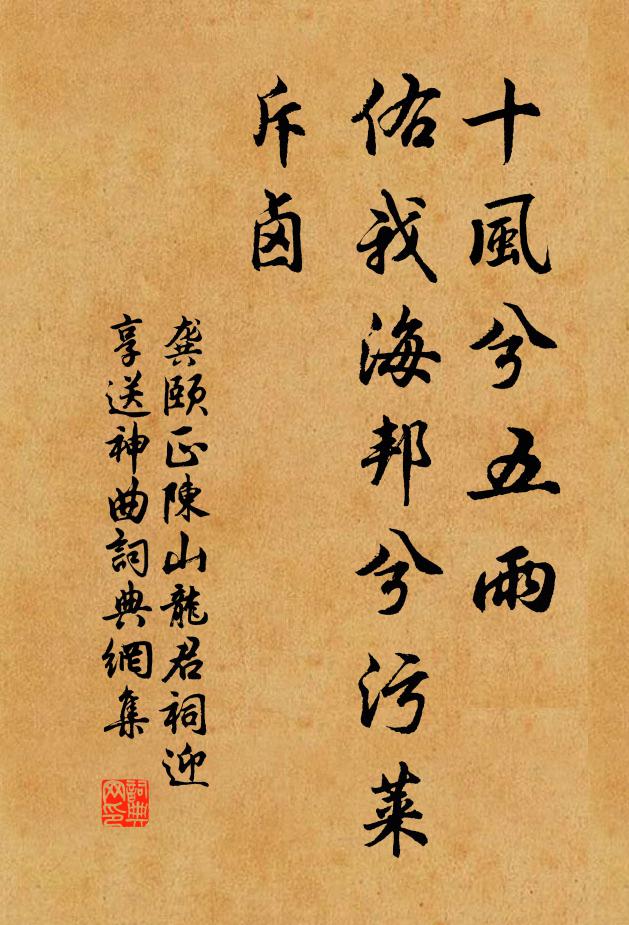 十風兮五雨
佑我海邦兮污萊
斥鹵
龔頤正陳山龍君祠迎
享送神曲詞典網集
詞典
网印